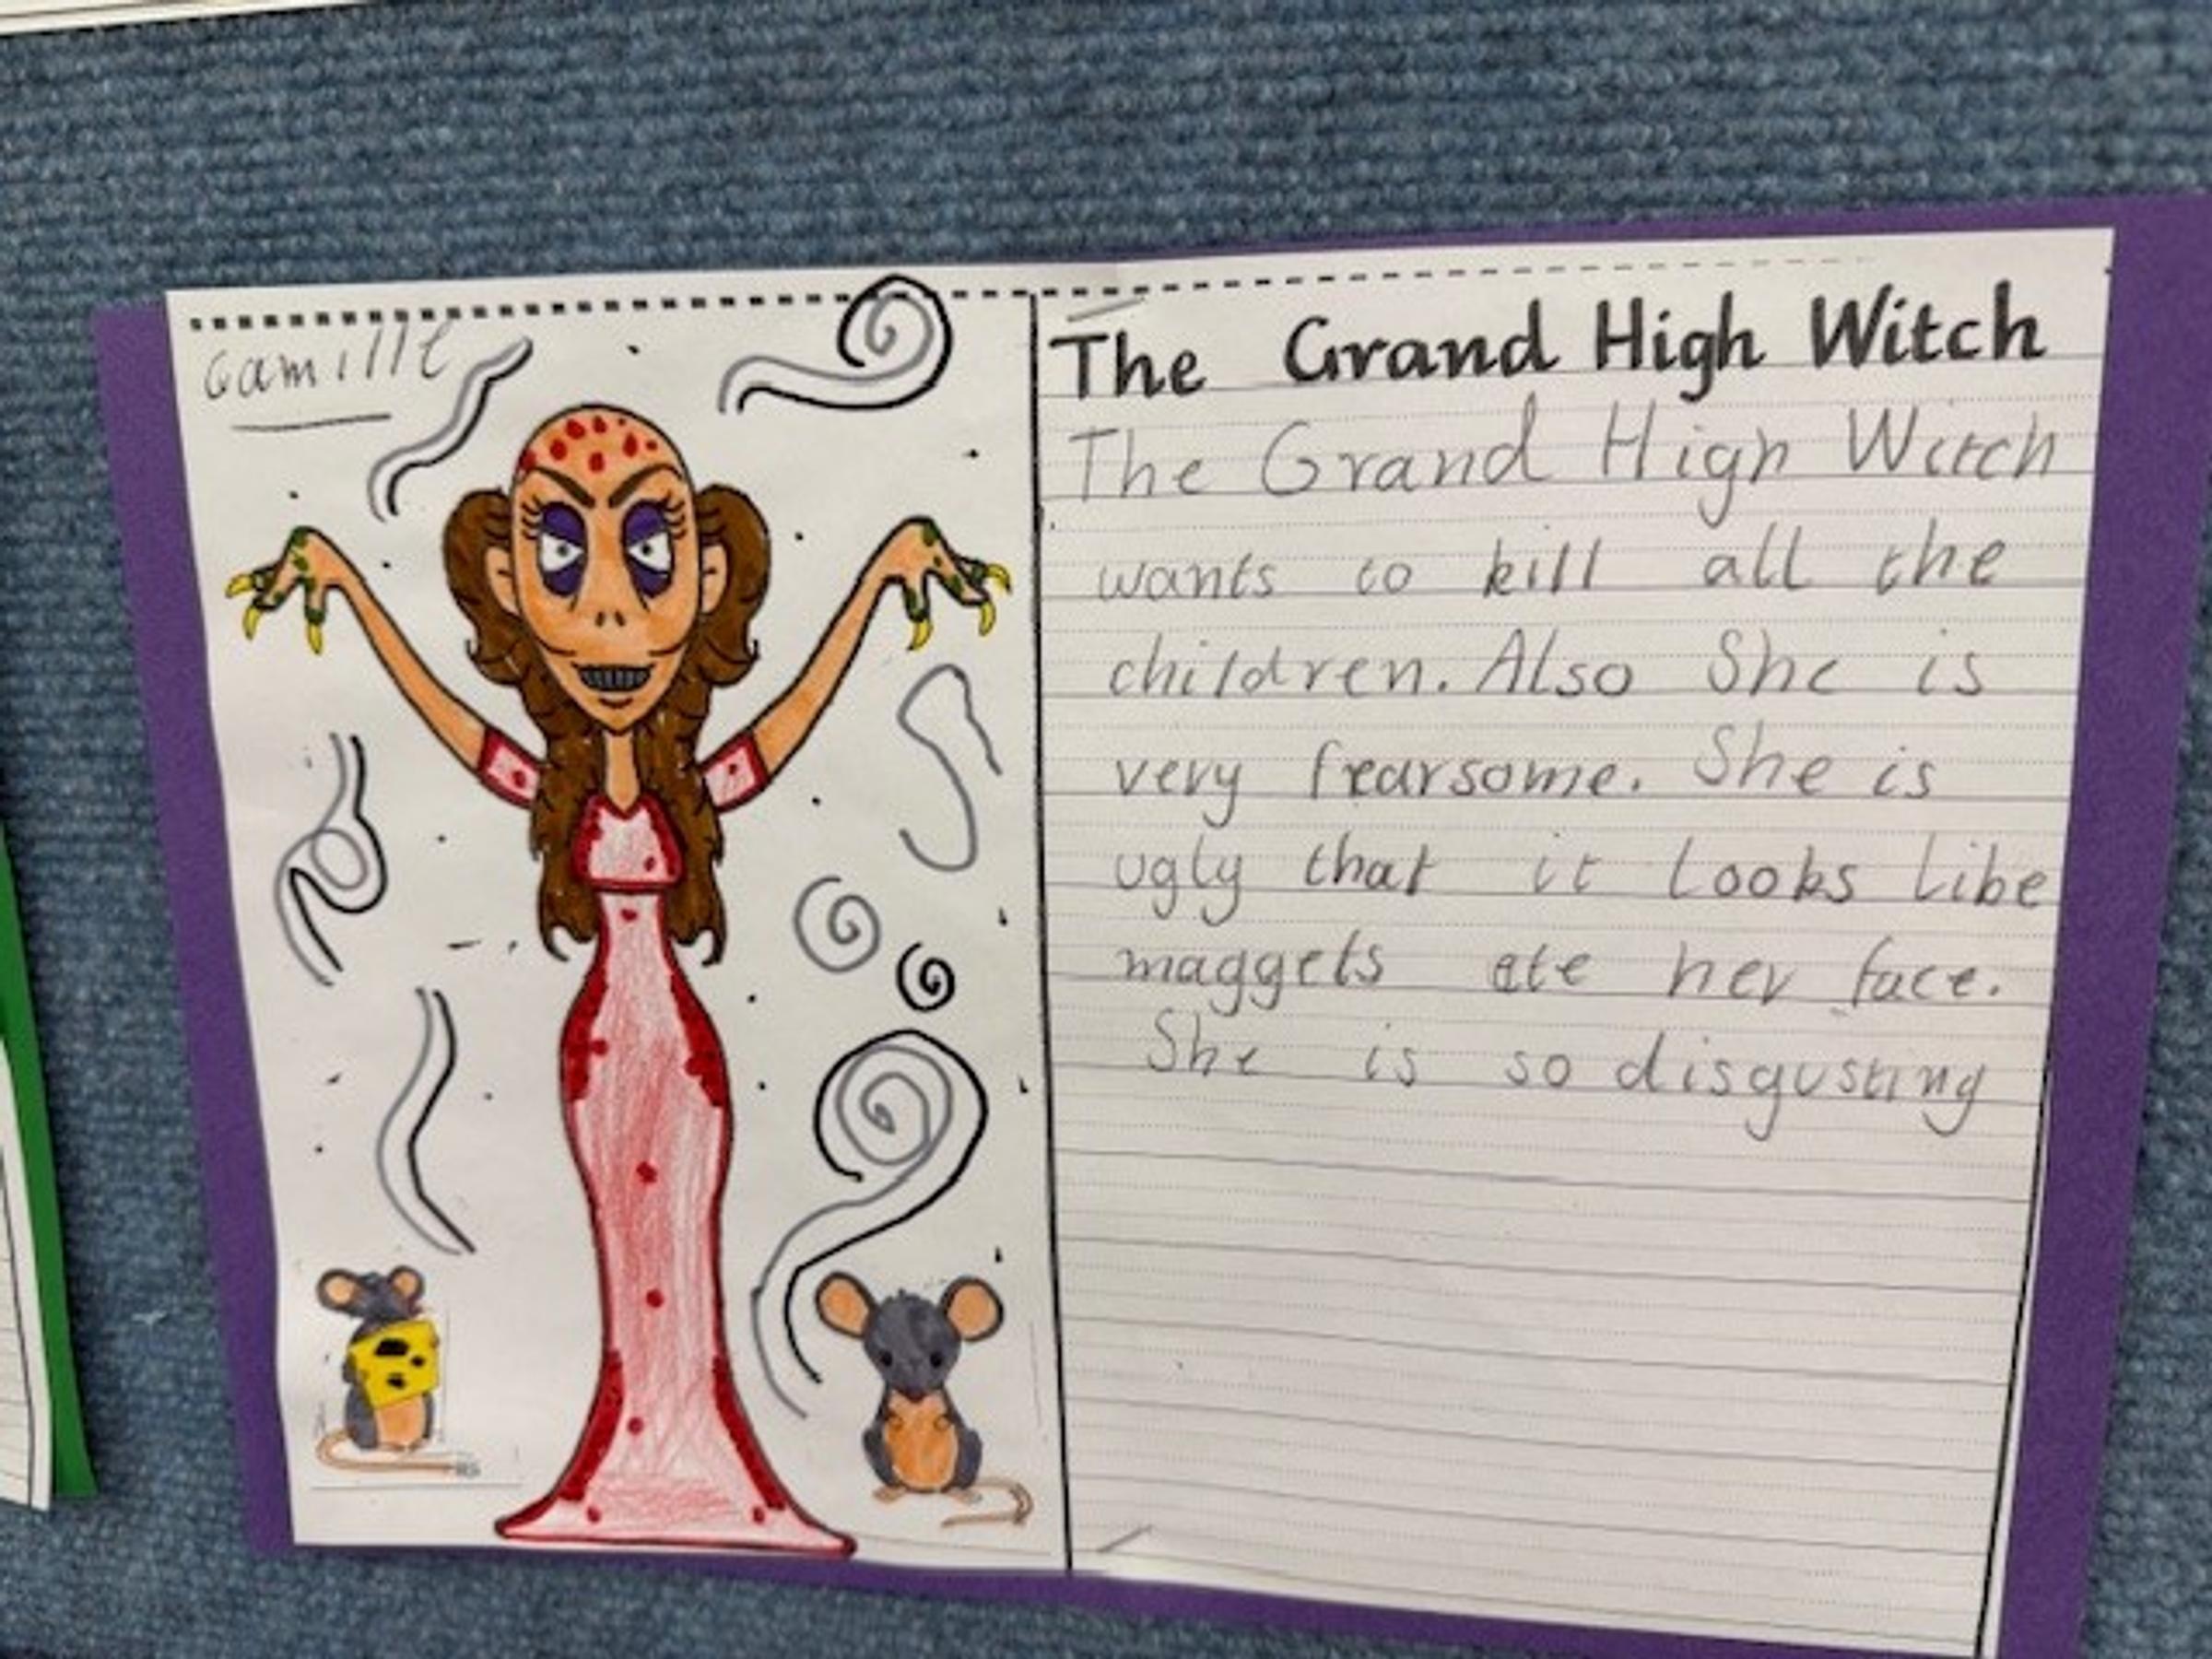 Camille
The Grand High Witch
The Grand High Witch
wants to kill all the
children. Also She is
very fearsome. She is
ugly that it looks like
maggets ate her face.
She is so disgusting